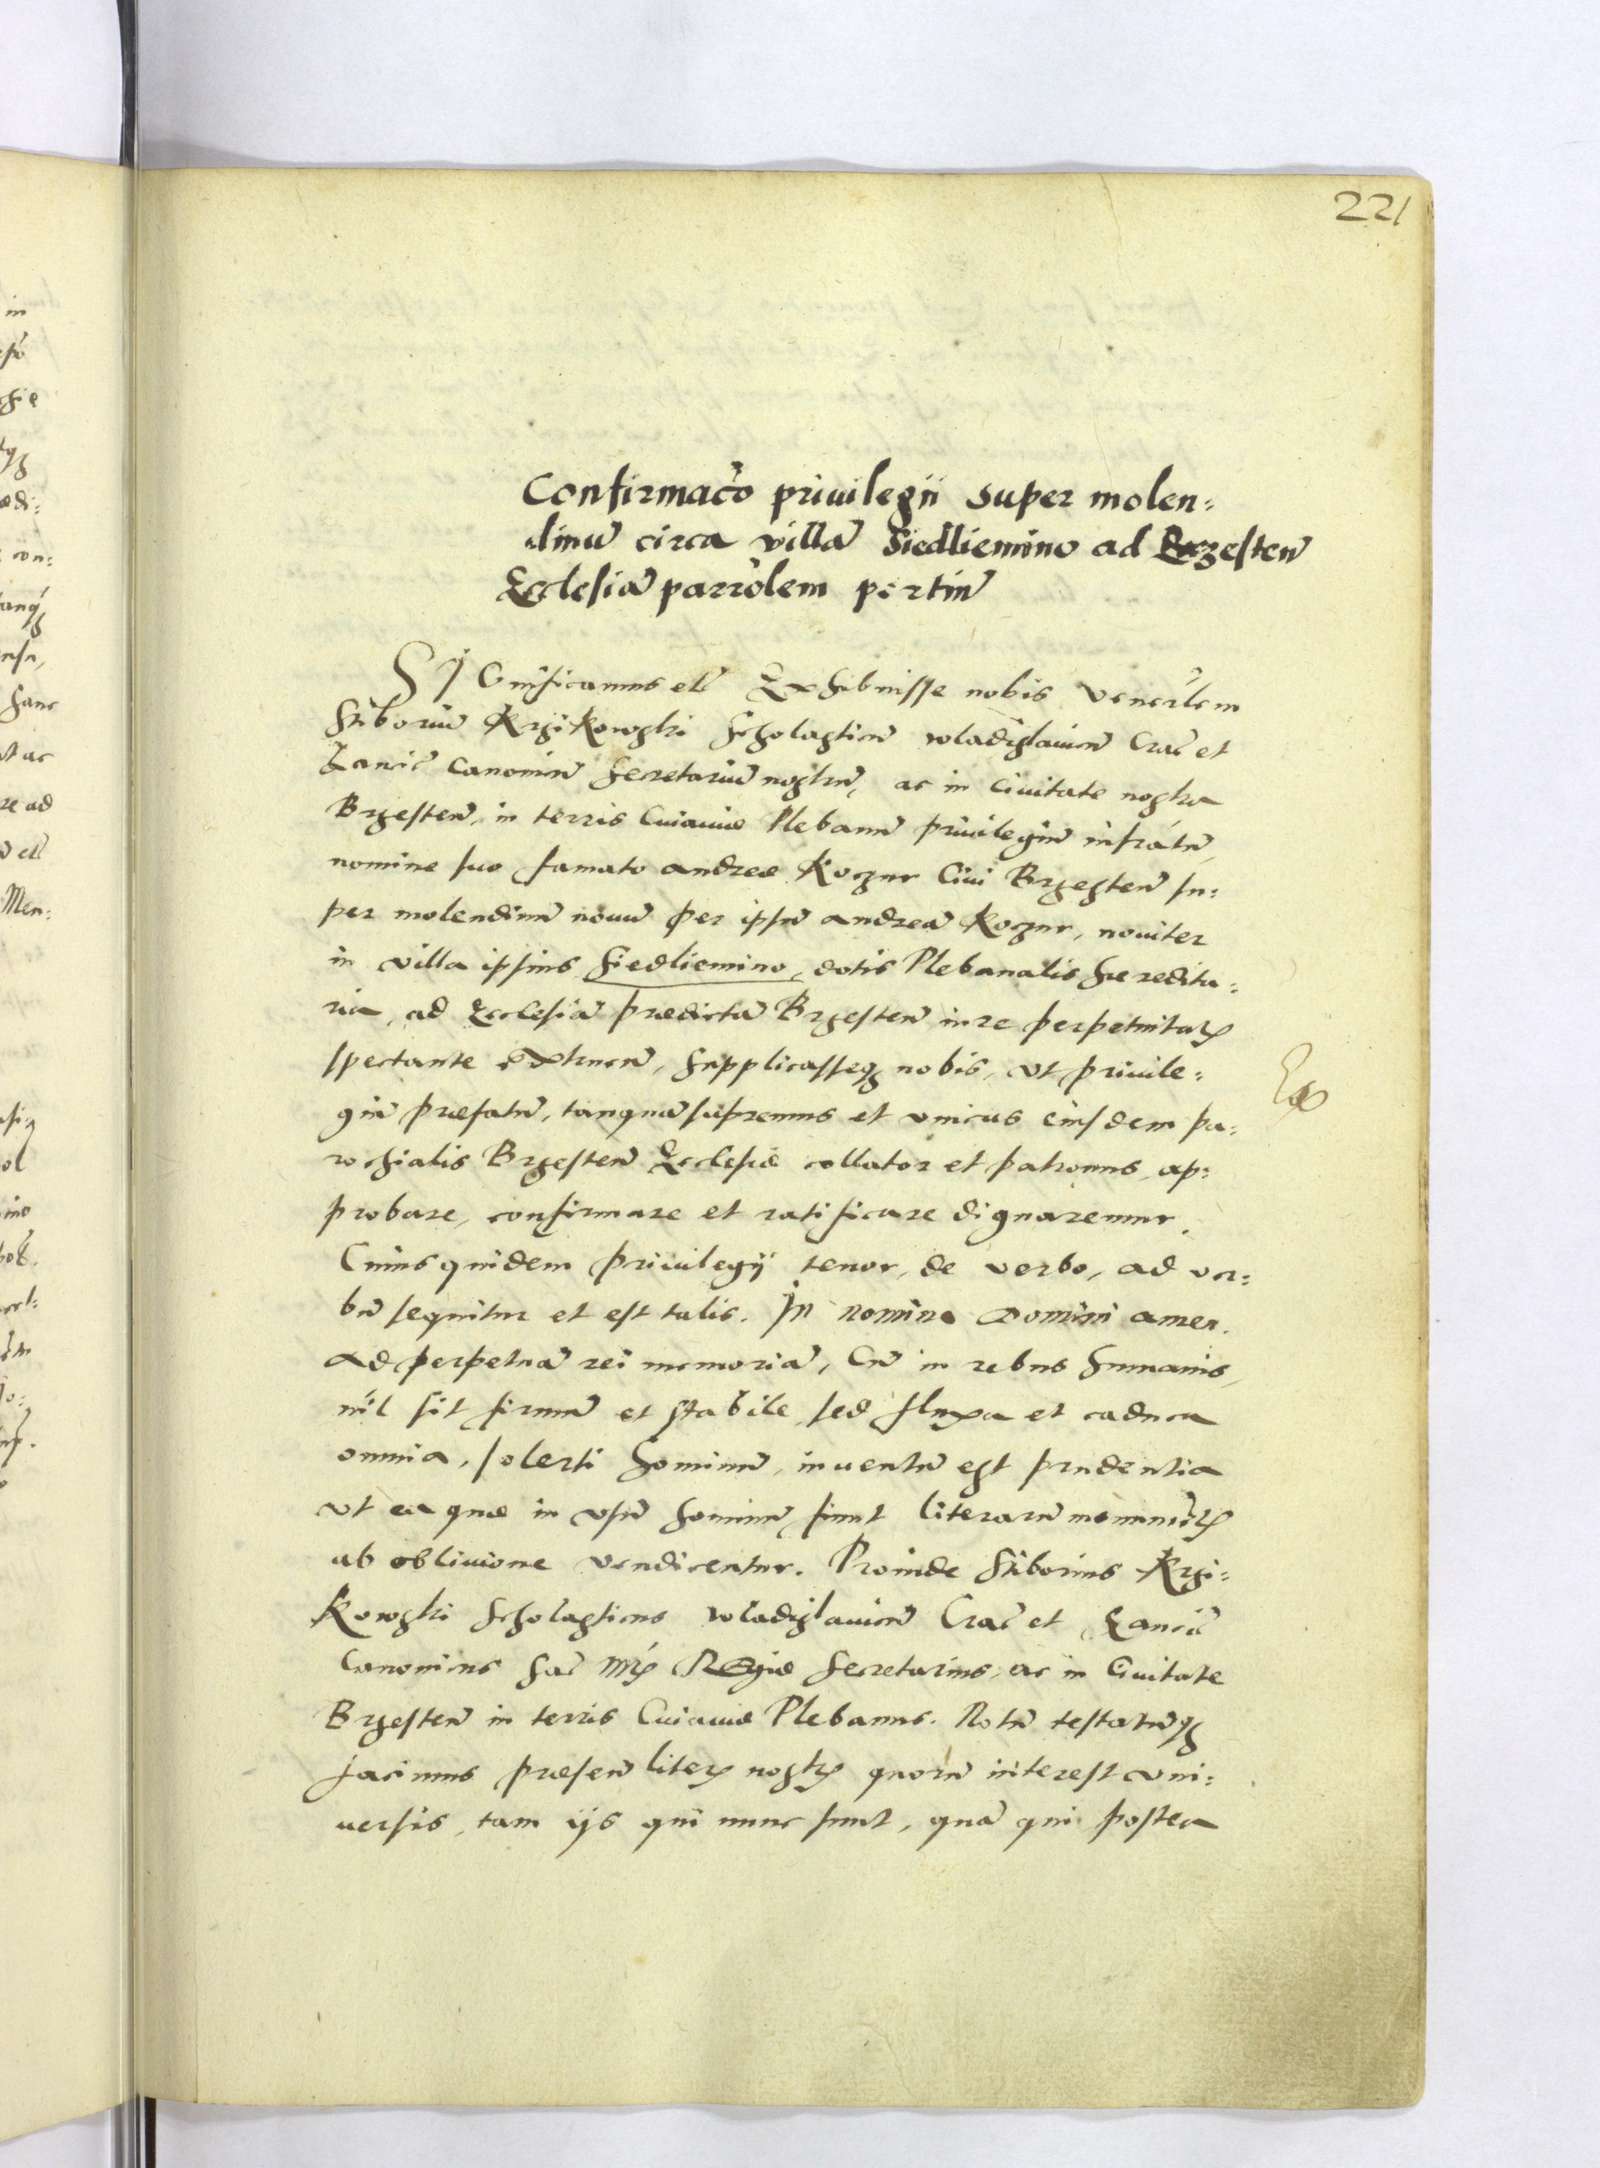 221
Confirmac̃o priuilegii super molen:
dinũ circa villã Siedliemino ad Brzesten̄
Ecclesiã parrõlem pertiñ
SIGnificamus etc̃ Exhibuisse nobis Venerãlem
Stiborium Krzikowski Scholasticũ wladislauieñ Crac̃ et
Lancic̃ Canonicũ Secretariũ nostrũ, ac in Ciuitate nostra
Brzesteñ, in terris Cuiauiæ Plebanũ priuilegiũ infrãtũ,
nomine suo famato Andreæ Koczur Ciui Brzesteñ su:
per molendinũ nouũ per ipsũ Andreã Koczur, nouiter
in villa ipsius Siedliemino, dotis Plebanalis heredita:
ria, ad Ecclesiã prædictã Brzesteñ iure perpetuitatis
spectante extructũ, supplicasseq₃ nobis, vt priuile:
giũ præfatũ, tanquã supremus et vnicus eiusdem pa:
rochialis Brzesteñ Ecclesiæ collator et patronus, ap:
probare, confirmare et ratificare dignaremur.
Cuius quidem priuilegij tenor, de verbo, ad ver:
bũ sequitur et est talis. In nomine Domini amen.
Ad perpetuã rei memoriã, Cũ in rebus humanis,
nil sit firmũ et stabile sed fluxa et caduca
omnia, solerti hominũ, inuentũ est prudentia
vt ea quæ in vsũ hominũ fiunt literarũ monumẽtis
ab obliuione vendicentur. Proinde Stiborius Krzi:
Kowski Scholasticus wladislauieñ Crac̃ et Lancic̃
Canonicus Sac̃ Mtis Regiæ Secretarius, ac in Ciuitate
Brzesteñ in terris Cuiauiæ Plebanus. Notũ testatũq₃
facimus præseñ literis nostris quorũ interest vni:
uersis, tam ijs qui nunc sunt, quã qui postea